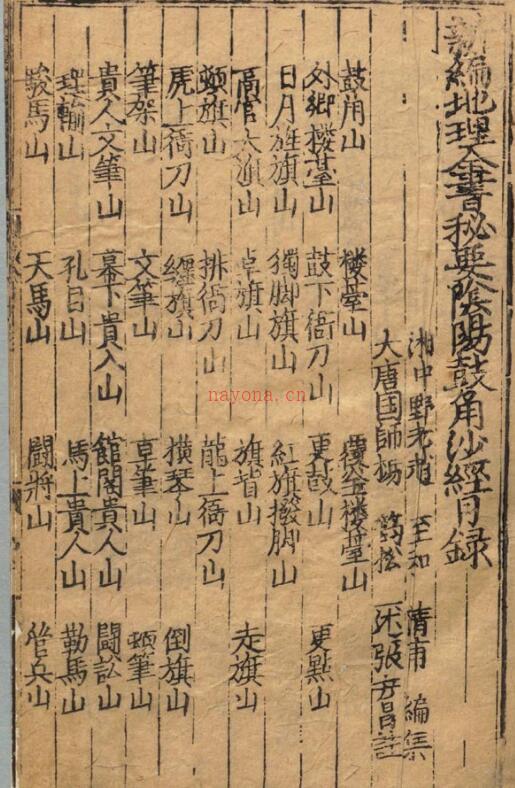 新編地理全書秘要陰陽鼓角沙經目録
湘中野老趙 至和 清甫 編集
大唐国師楊 筠松 述 張 昌註
鼓角山 樓臺山 覆釡樓臺山
外鄉樓臺山 鼓下衙刀山 更鼓山 更點山
日月旌旗山 獨脚旗山 紅旗撥脚山
高官大旗山 卓旗山 旗皆山 走旗山
頓旗山 排衙刀山 龍上衙刀山
虎上衙刀山 纏旗山 橫琴山 倒旗山
筆架山 文筆山 卓筆山 頓筆山
貴人文筆山 幕下貴人山 館閣貴人山 闘訟山
山 孔日山 馬上貴人山 勒馬山
駿馬山 天馬山 闘將山 管兵山
nayona.cn